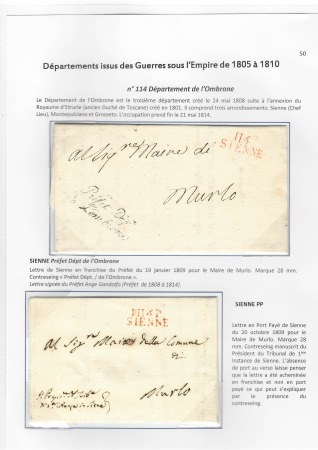 50
Départements issus des Guerres sous l'Empire de 1805 à 1810
n° 114 Département de l'Ombrone
Le Département de l'Ombrone est le troisième département créé le 24 mai 1808 suite à l'annexion du
Royaume d'Etrurie (ancien Duché de Toscane) créé en 1801. Il comprend trois arrondissements: Sienne (Chef
Lieu), Montepulciano et Grosseto. L'occupation prend fin le 21 mai 1814.
114
SIENNE
al Sig.re Maire di
Murlo
Préfet Dépt.
de l'Ombrone
SIENNE Préfet Dépt de l'Ombrone
Lettre de Sienne en franchise du Préfet du 19 Janvier 1809 pour le Maire de Murlo. Marque 28 mm.
Contreseing « Préfet Dépt. / de l'Ombrone ».
Lettre signée du Préfet Ange Gandolfo (Préfet de 1808 à 1814).
P114P
SIENNE
al Sig.re Maire della Comune
di
Murlo
SIENNE PP
Lettre en Port Payé de Sienne
du 20 octobre 1809 pour le
Maire de Murlo. Marque 28
mm. Contreseing manuscrit du
Président du Tribunal de 1ère
instance de Sienne. L'absence
de port au verso laisse penser
que la lettre a été acheminée
en franchise et non en port
payé ce qui peut s'expliquer
par le présence du
contreseing.